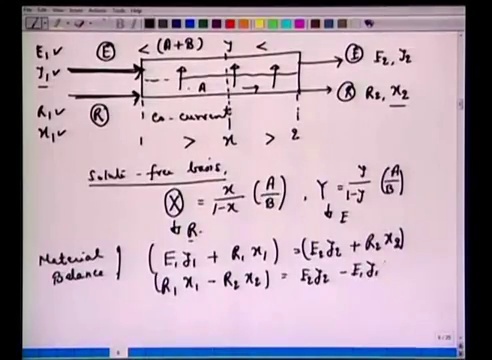 E₁ ✓ (E) < (A+B) y < (E) E₂, y₂
y₁ ✓
A
R₁ ✓ (R) (R) R₂, x₂
x₁ ✓ co-current
1 > x > 2
Solute-free basis,
(X) = x/(1-x) (A/B), Y = y/(1-y) (A/B)
↓ R. ↓ E
Material Balance } (E₁ y₁ + R₁ x₁) = (E₂ y₂ + R₂ x₂)
(R₁ x₁ - R₂ x₂) = E₂ y₂ - E₁ y₁